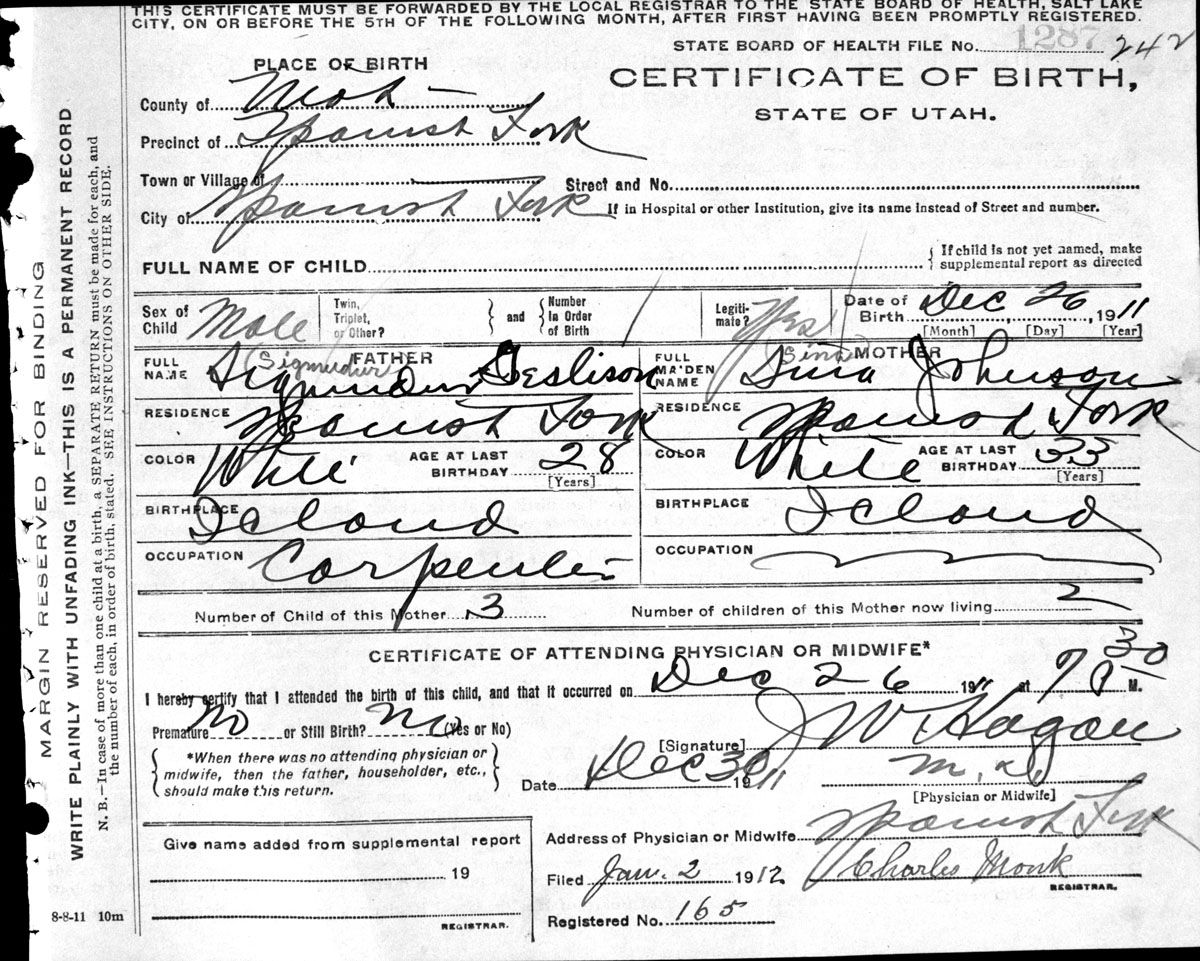 THIS CERTIFICATE MUST BE FORWARDED BY THE LOCAL REGISTRAR TO THE STATE BOARD OF HEALTH, SALT LAKE
CITY, ON OR BEFORE THE 5TH OF THE FOLLOWING MONTH, AFTER FIRST HAVING BEEN PROMPTLY REGISTERED.
STATE BOARD OF HEALTH FILE No. 1287 242
PLACE OF BIRTH
CERTIFICATE OF BIRTH,
STATE OF UTAH.
County of
Precinct of Spanish Fork
Town or Village of
Street and No.
City of Spanish Fork
If in Hospital or other Institution, give its name instead of Street and number.
FULL NAME OF CHILD
If child is not yet named, make
supplemental report as directed
Sex of Child Male
Twin, Triplet, or Other?
and
Number In Order of Birth
Legitimate? Yes
Date of Birth Dec 26, 1911
[Month] [Day] [Year]
FATHER
FULL NAME (Sigmundur) Sigmundur Geslison
MOTHER
FULL MAIDEN NAME (Sina) Sina Johnson
RESIDENCE Spanish Fork
RESIDENCE Spanish Fork
COLOR White AGE AT LAST BIRTHDAY 28 [Years]
COLOR White AGE AT LAST BIRTHDAY 33 [Years]
BIRTHPLACE Icland
BIRTHPLACE Icland
OCCUPATION Carpenter
OCCUPATION
Number of Child of this Mother 3
Number of children of this Mother now living 2
CERTIFICATE OF ATTENDING PHYSICIAN OR MIDWIFE*
I hereby certify that I attended the birth of this child, and that it occurred on Dec 26 1911 at 30 M.
Premature No or Still Birth? No (Yes or No)
*When there was no attending physician or
midwife, then the father, householder, etc.,
should make this return.
[Signature] J W Hagan
M.D.
Date Dec 30 1911
[Physician or Midwife]
Address of Physician or Midwife Spanish Fork
Give name added from supplemental report
19
REGISTRAR.
Filed Jan. 2 1912 Charles Monk
REGISTRAR.
Registered No. 165
8-8-11 10m
MARGIN RESERVED FOR BINDING
WRITE PLAINLY WITH UNFADING INK—THIS IS A PERMANENT RECORD
N. B.—In case of more than one child at a birth, a SEPARATE RETURN must be made for each, and
the number of each, in order of birth, stated. SEE INSTRUCTIONS ON OTHER SIDE.